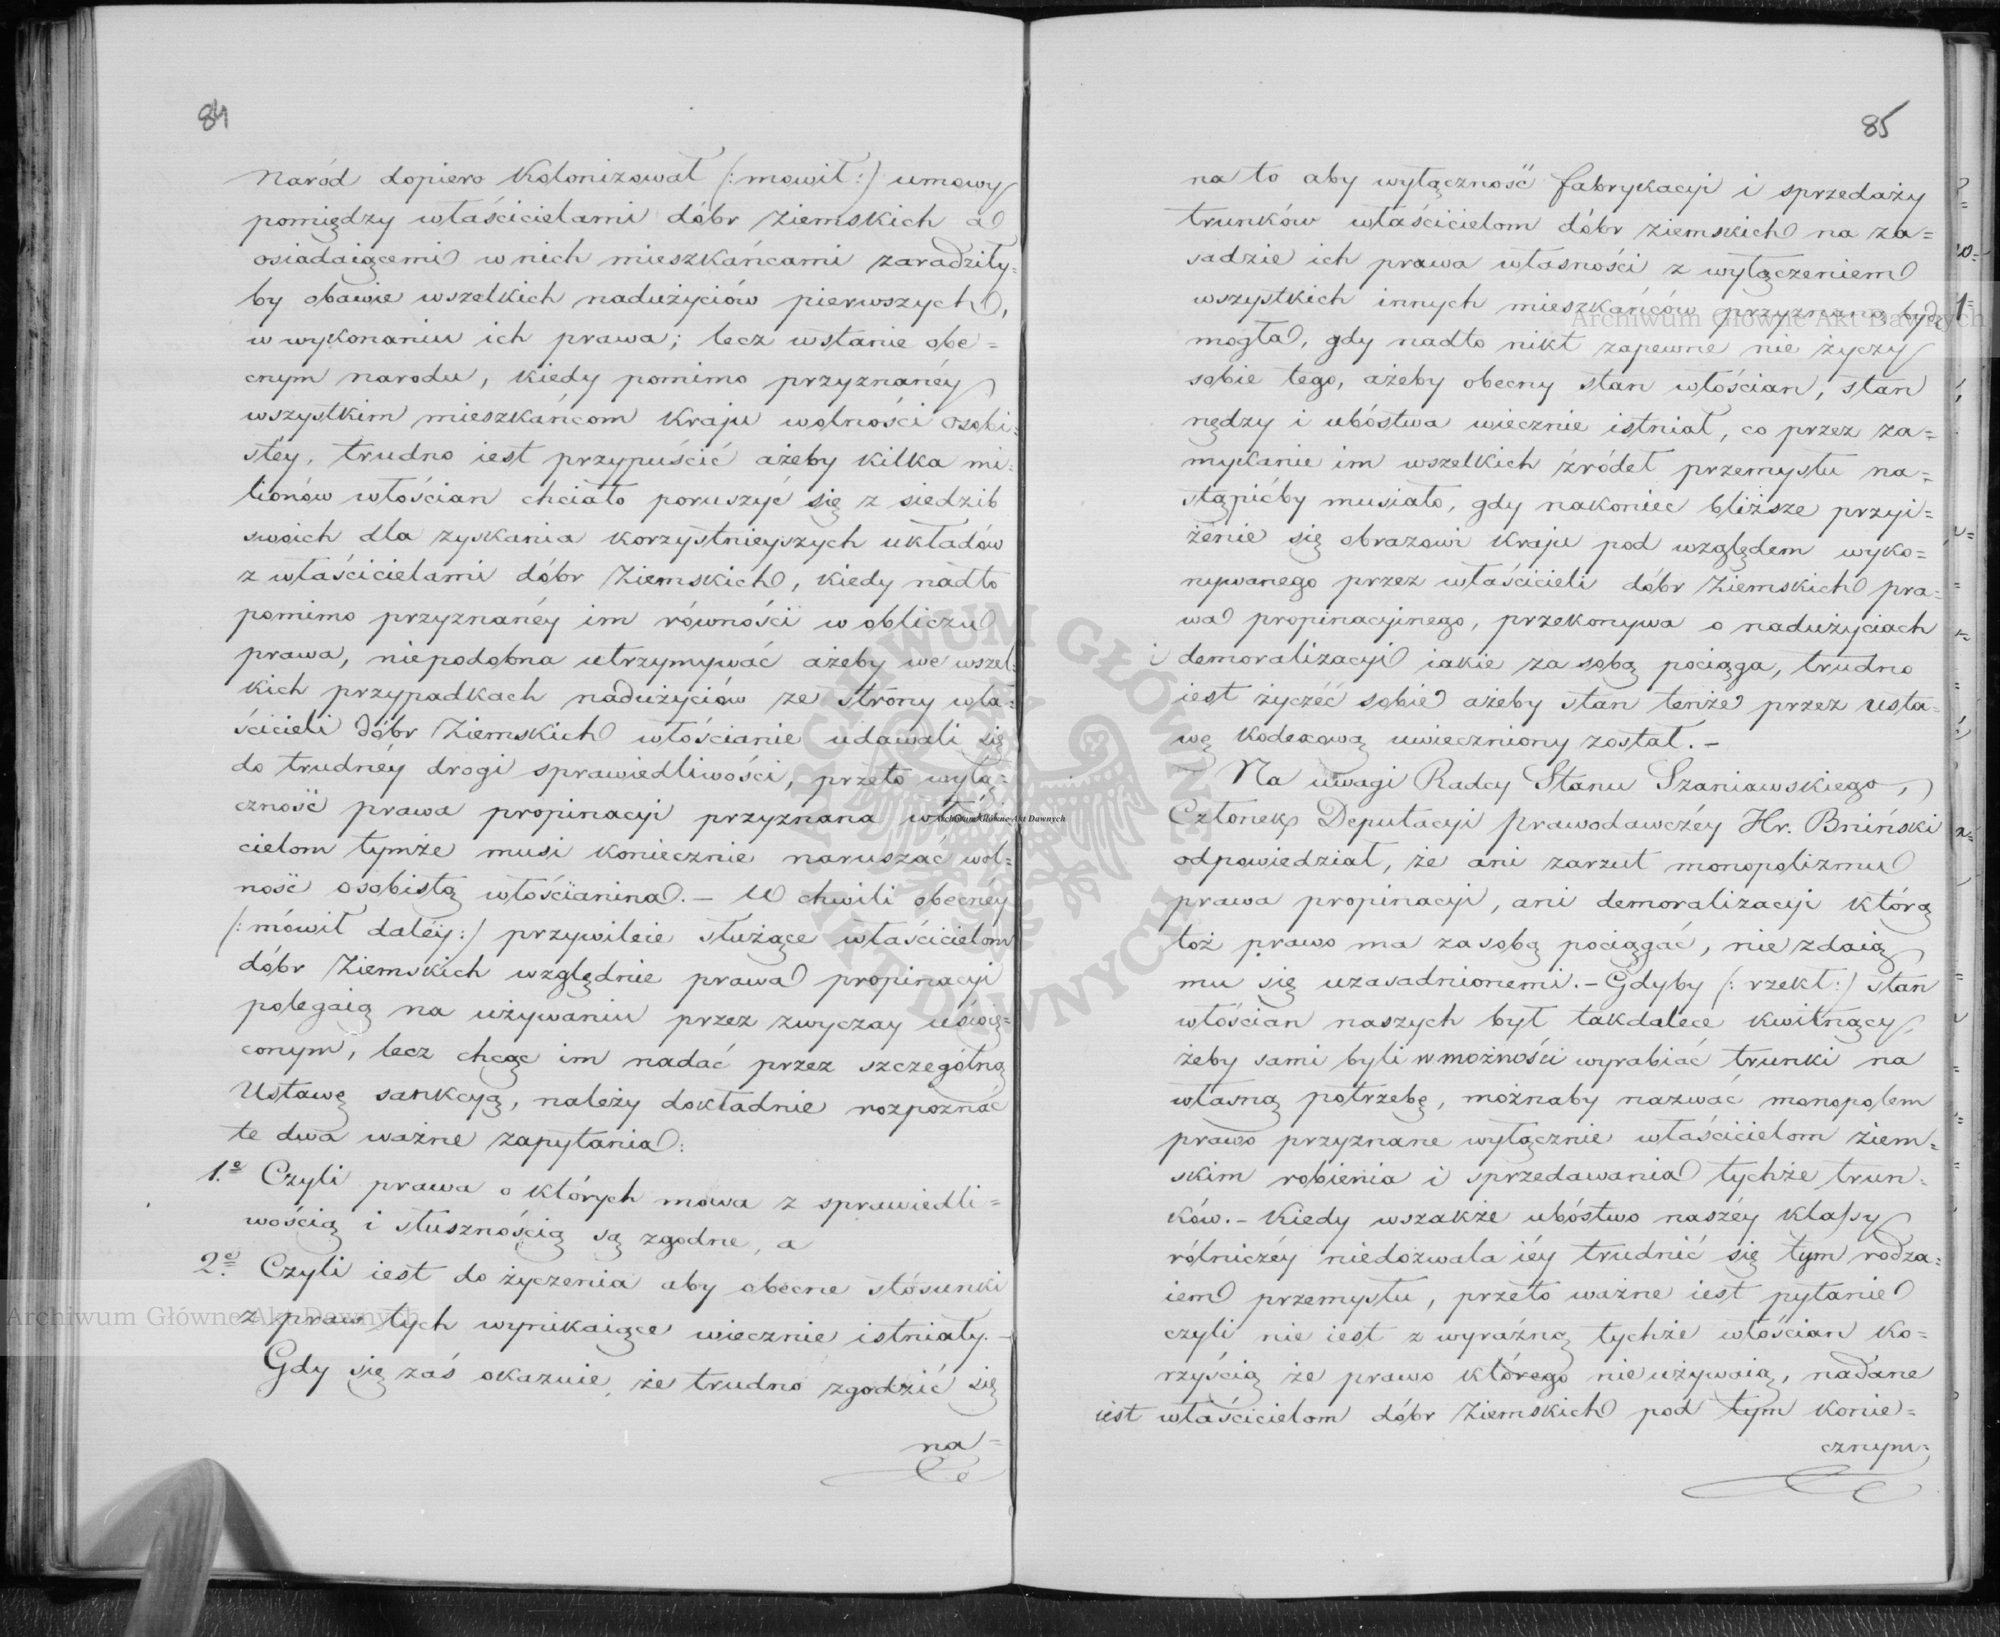 84
Naród dopiero kolonizował (: mowił :) umowy
pomiędzy właścicielami dóbr Ziemskich a
osiadaiącemi w nich mieszkańcami zaradziły-
by obawie wszelkich nadużyciów pierwszych,
w wykonaniu ich prawa; lecz w stanie obe=
cnym narodu, kiedy pomimo przyznanéy
wszystkim mieszkańcom Kraju wolności osobi=
stéy, trudno iest przypuścić ażeby kilka mi=
lionów włościan chciało poruszyć się z siedzib
swoich dla zyskania korzystnieyszych układów
z właścicielami dóbr Ziemskich, kiedy nadto
pomimo przyznanéy im równości w obliczu
prawa, niepodobna utrzymywać ażeby we wszel=
kich przypadkach nadużyciów ze strony wła=
ścicieli dóbr Ziemskich włościanie udawali się
do trudnéy drogi sprawiedliwości, przeto wyłą=
czność prawa propinacyi przyznana właści
cielom tymże musi koniecznie naruszać wol=
ność osobistą włościanina. – W chwili obecnéy
(: mówił daléy :) przywileie służące właścicielom
dóbr Ziemskich względnie prawa propinacyi
polegaią na używaniu przez zwyczay uświę=
conym, lecz chcąc im nadać przez szczególną
Ustawę sankcyą, należy dokładnie rozpoznać
te dwa ważne zapytania:
1.º Czyli prawa o których mowa z sprawiedli=
wością i słusznością są zgodne, a
2.º Czyli iest do życzenia aby obecne stósunki
z praw tych wynikaiące wiecznie istniały. –
Gdy się zaś okazuie, że trudno zgodzić się
na=
85
na to aby wyłączność fabrykacyi i sprzedaży
trunków właścicielom dóbr Ziemskich na za=
sadzie ich prawa własności z wyłączeniem
wszystkich innych mieszkańców przyznana bydź
mogła, gdy nadto nikt zapewne nie życzy
sobie tego, ażeby obecny stan włościan, stan
nędzy i ubóstwa wiecznie istniał, co przez za=
mykanie im wszelkich źródeł przemysłu na=
stąpićby musiało, gdy nakoniec bliższe przyi=
żenie się obrazowi kraju pod względem wyko=
nywanego przez właścicieli dóbr Ziemskich pra=
wa propinacyinego, przekonywa o nadużyciach
i demoralizacyi iakie za sobą pociąga, trudno
iest życzéć sobie ażeby stan tenże przez usta=
wę kodexową uwieczniony został. –
Na uwagi Radcy Stanu Szaniawskiego,
Członek Deputacyi prawodawczéy Hr. Bniński
odpowiedział, że ani zarzut monopolizmu
prawa propinacyi, ani demoralizacyi którą
toż prawo ma za sobą pociągać, nie zdaią
mu się uzasadnionemi. – Gdyby (: rzekł :) stan
włościan naszych był takdalece kwitnący,
żeby sami byli w możności wyrabiać trunki na
własną potrzebę, możnaby nazwać monopolem
prawo przyznane wyłącznie właścicielom ziem=
skim robienia i sprzedawania tychże trun=
ków. – Kiedy wszakże ubóstwo naszéy klassy
rólniczéy niedozwala iéy trudnić się tym rodza=
iem przemysłu, przeto ważne iest pytanie
czyli nie iest z wyraźną tychże włościan ko=
rzyścią że prawo którego nie używaią, nadane
iest właścicielom dóbr Ziemskich pod tym konie=
cznym=
Archiwum Główne Akt Dawnych
Archiwum Główne Akt Dawnych
Archiwum Główne Akt Dawnych
ARCHIWUM GŁÓWNE AKT DAWNYCH